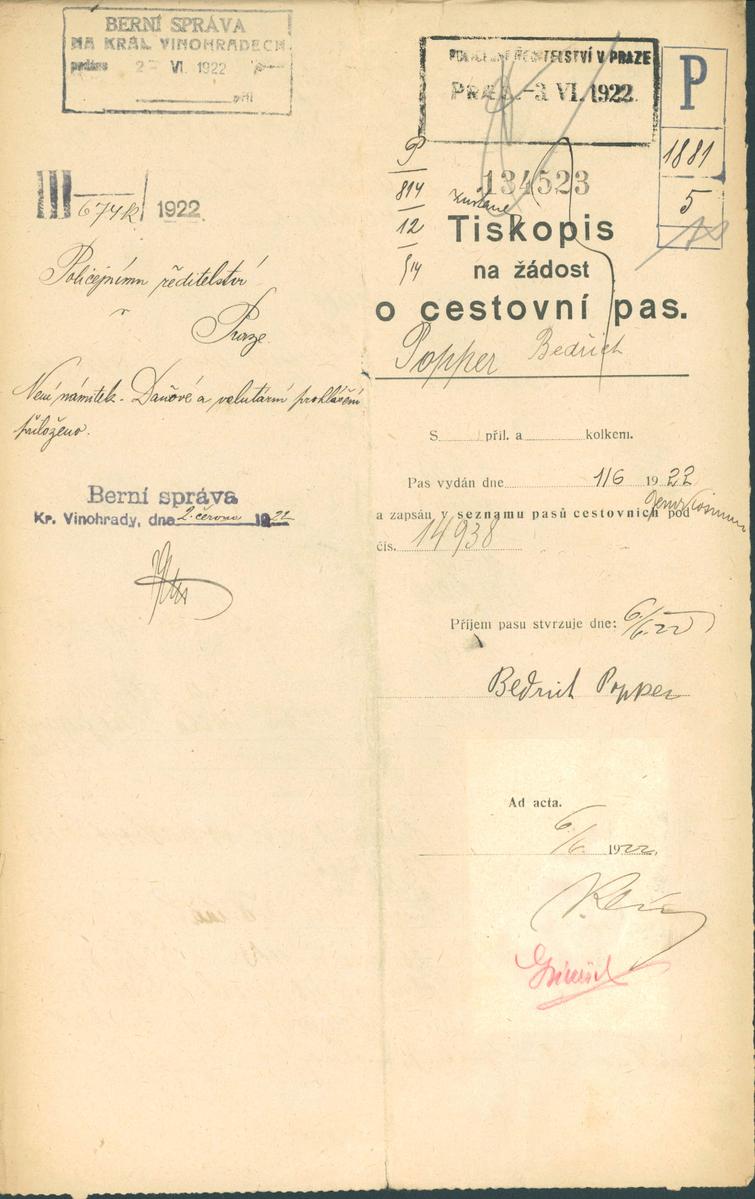 BERNÍ SPRÁVA
NA KRÁL. VINOHRADECH
podáno 2 VI. 1922
příl
III 674k / 1922
Policejnímu ředitelství
v
Praze.
Není námitek. Daňové a valutární prohlášení
přiloženo.
Berní správa
Kr. Vinohrady, dne 2. června 1922
POLICEJNÍ ŘEDITELSTVÍ V PRAZE
PRAHA -3 VI. 1922
P
1881
5
P
814
12
514
134523
Tiskopis
na žádost
o cestovní pas.
Popper Bedřich
S příl. a kolkem.
Pas vydán dne 1/6 1922
a zapsán v seznamu pasů cestovních pod
čís. 14938
Příjem pasu stvrzuje dne: 6/6.22
Bedřich Popper
Ad acta.
6/6. 1922.